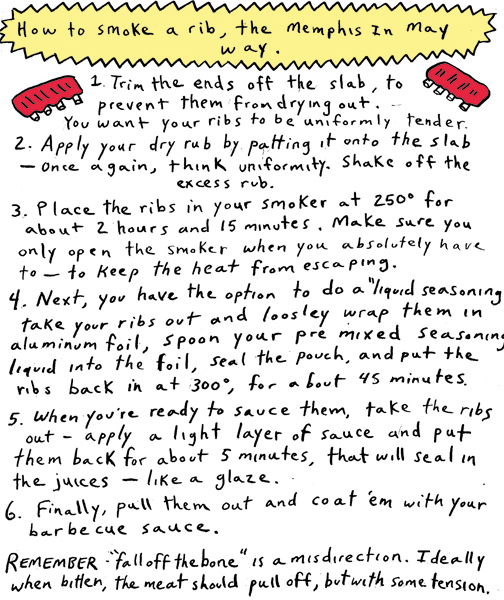 How to smoke a rib, the Memphis In May
way.
1. Trim the ends off the slab, to
prevent them from drying out.
You want your ribs to be uniformly tender.
2. Apply your dry rub by patting it onto the slab
– once again, think uniformity. Shake off the
excess rub.
3. Place the ribs in your smoker at 250° for
about 2 hours and 15 minutes. Make sure you
only open the smoker when you absolutely have
to – to keep the heat from escaping.
4. Next, you have the option to do a "liquid seasoning
take your ribs out and loosley wrap them in
aluminum foil, spoon your pre mixed seasoning
liquid into the foil, seal the pouch, and put the
ribs back in at 300°, for about 45 minutes.
5. When you're ready to sauce them, take the ribs
out – apply a light layer of sauce and put
them back for about 5 minutes, that will seal in
the juices – like a glaze.
6. Finally, pull them out and coat 'em with your
barbecue sauce.
REMEMBER - "fall off the bone" is a misdirection. Ideally
when bitten, the meat should pull off, but with some tension.